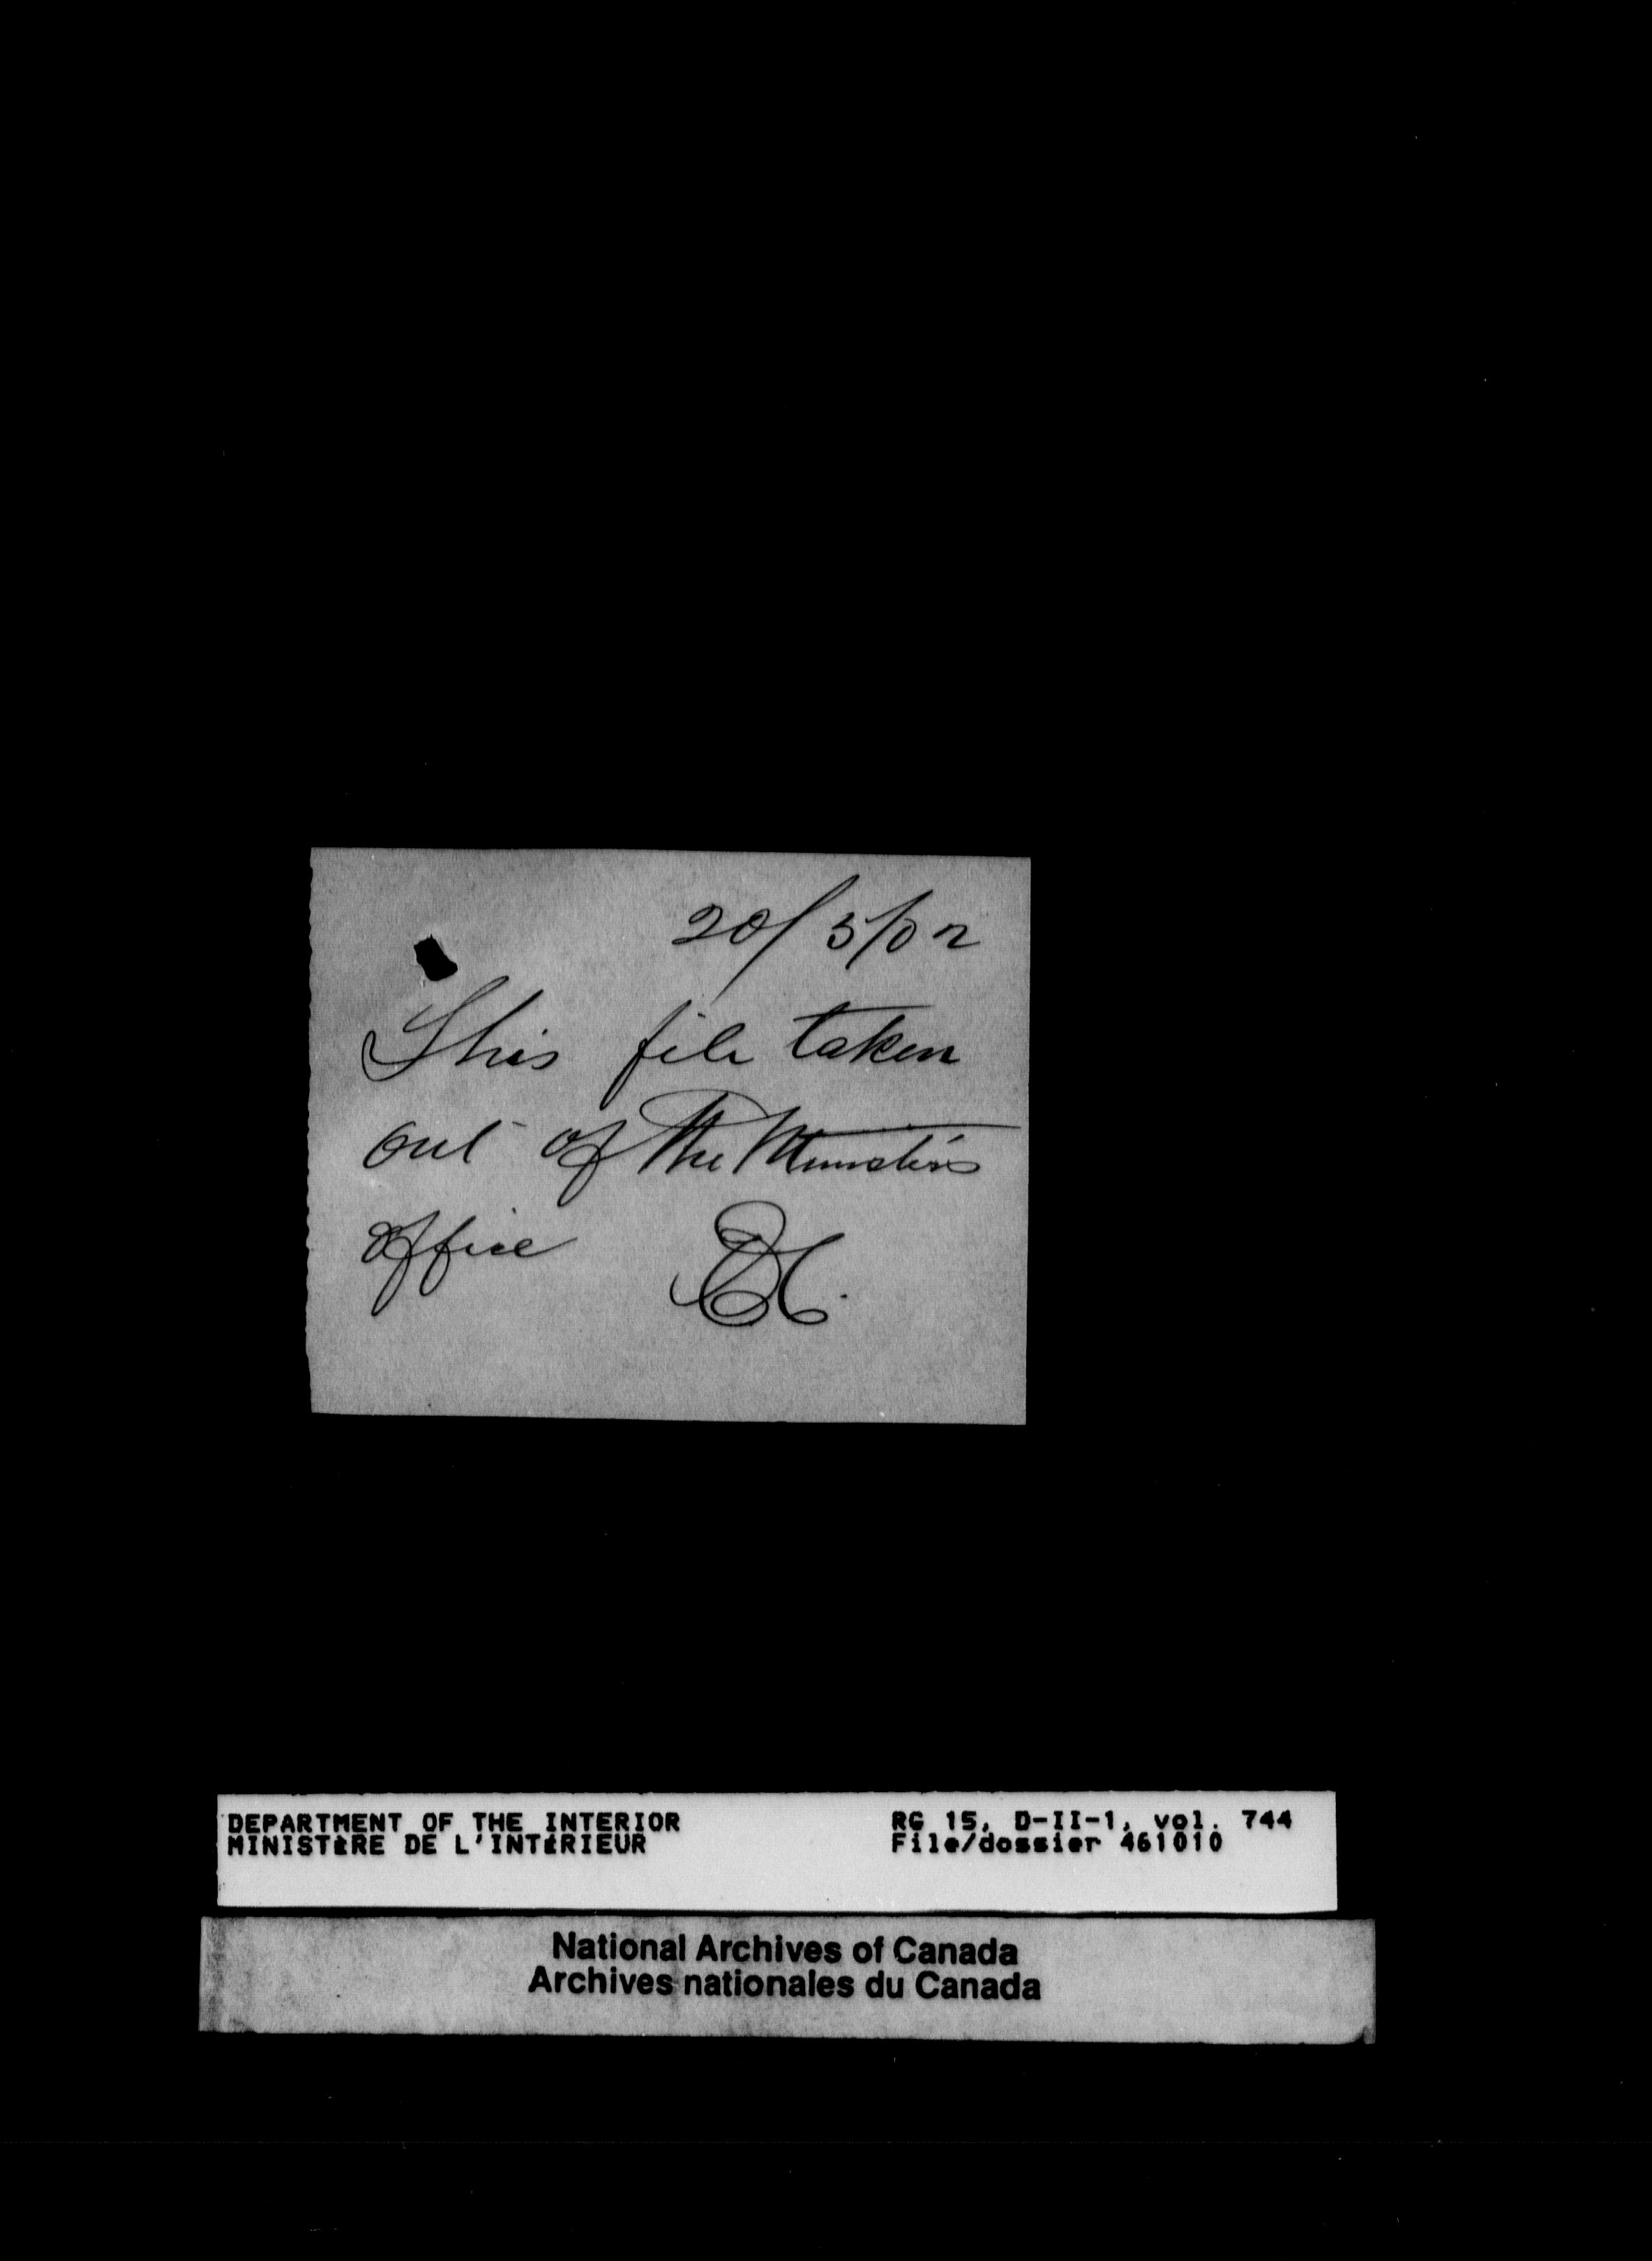 20/5/02
This file taken
out of the Minister's
office
DEPARTMENT OF THE INTERIOR
MINISTÈRE DE L'INTÉRIEUR
RG 15, D-II-1, vol. 744
File/dossier 461010
National Archives of Canada
Archives nationales du Canada